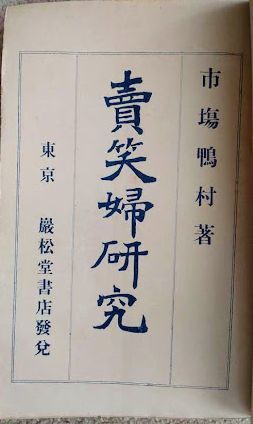 市場鴨村著
賣笑婦研究
東京 巖松堂書店發兌